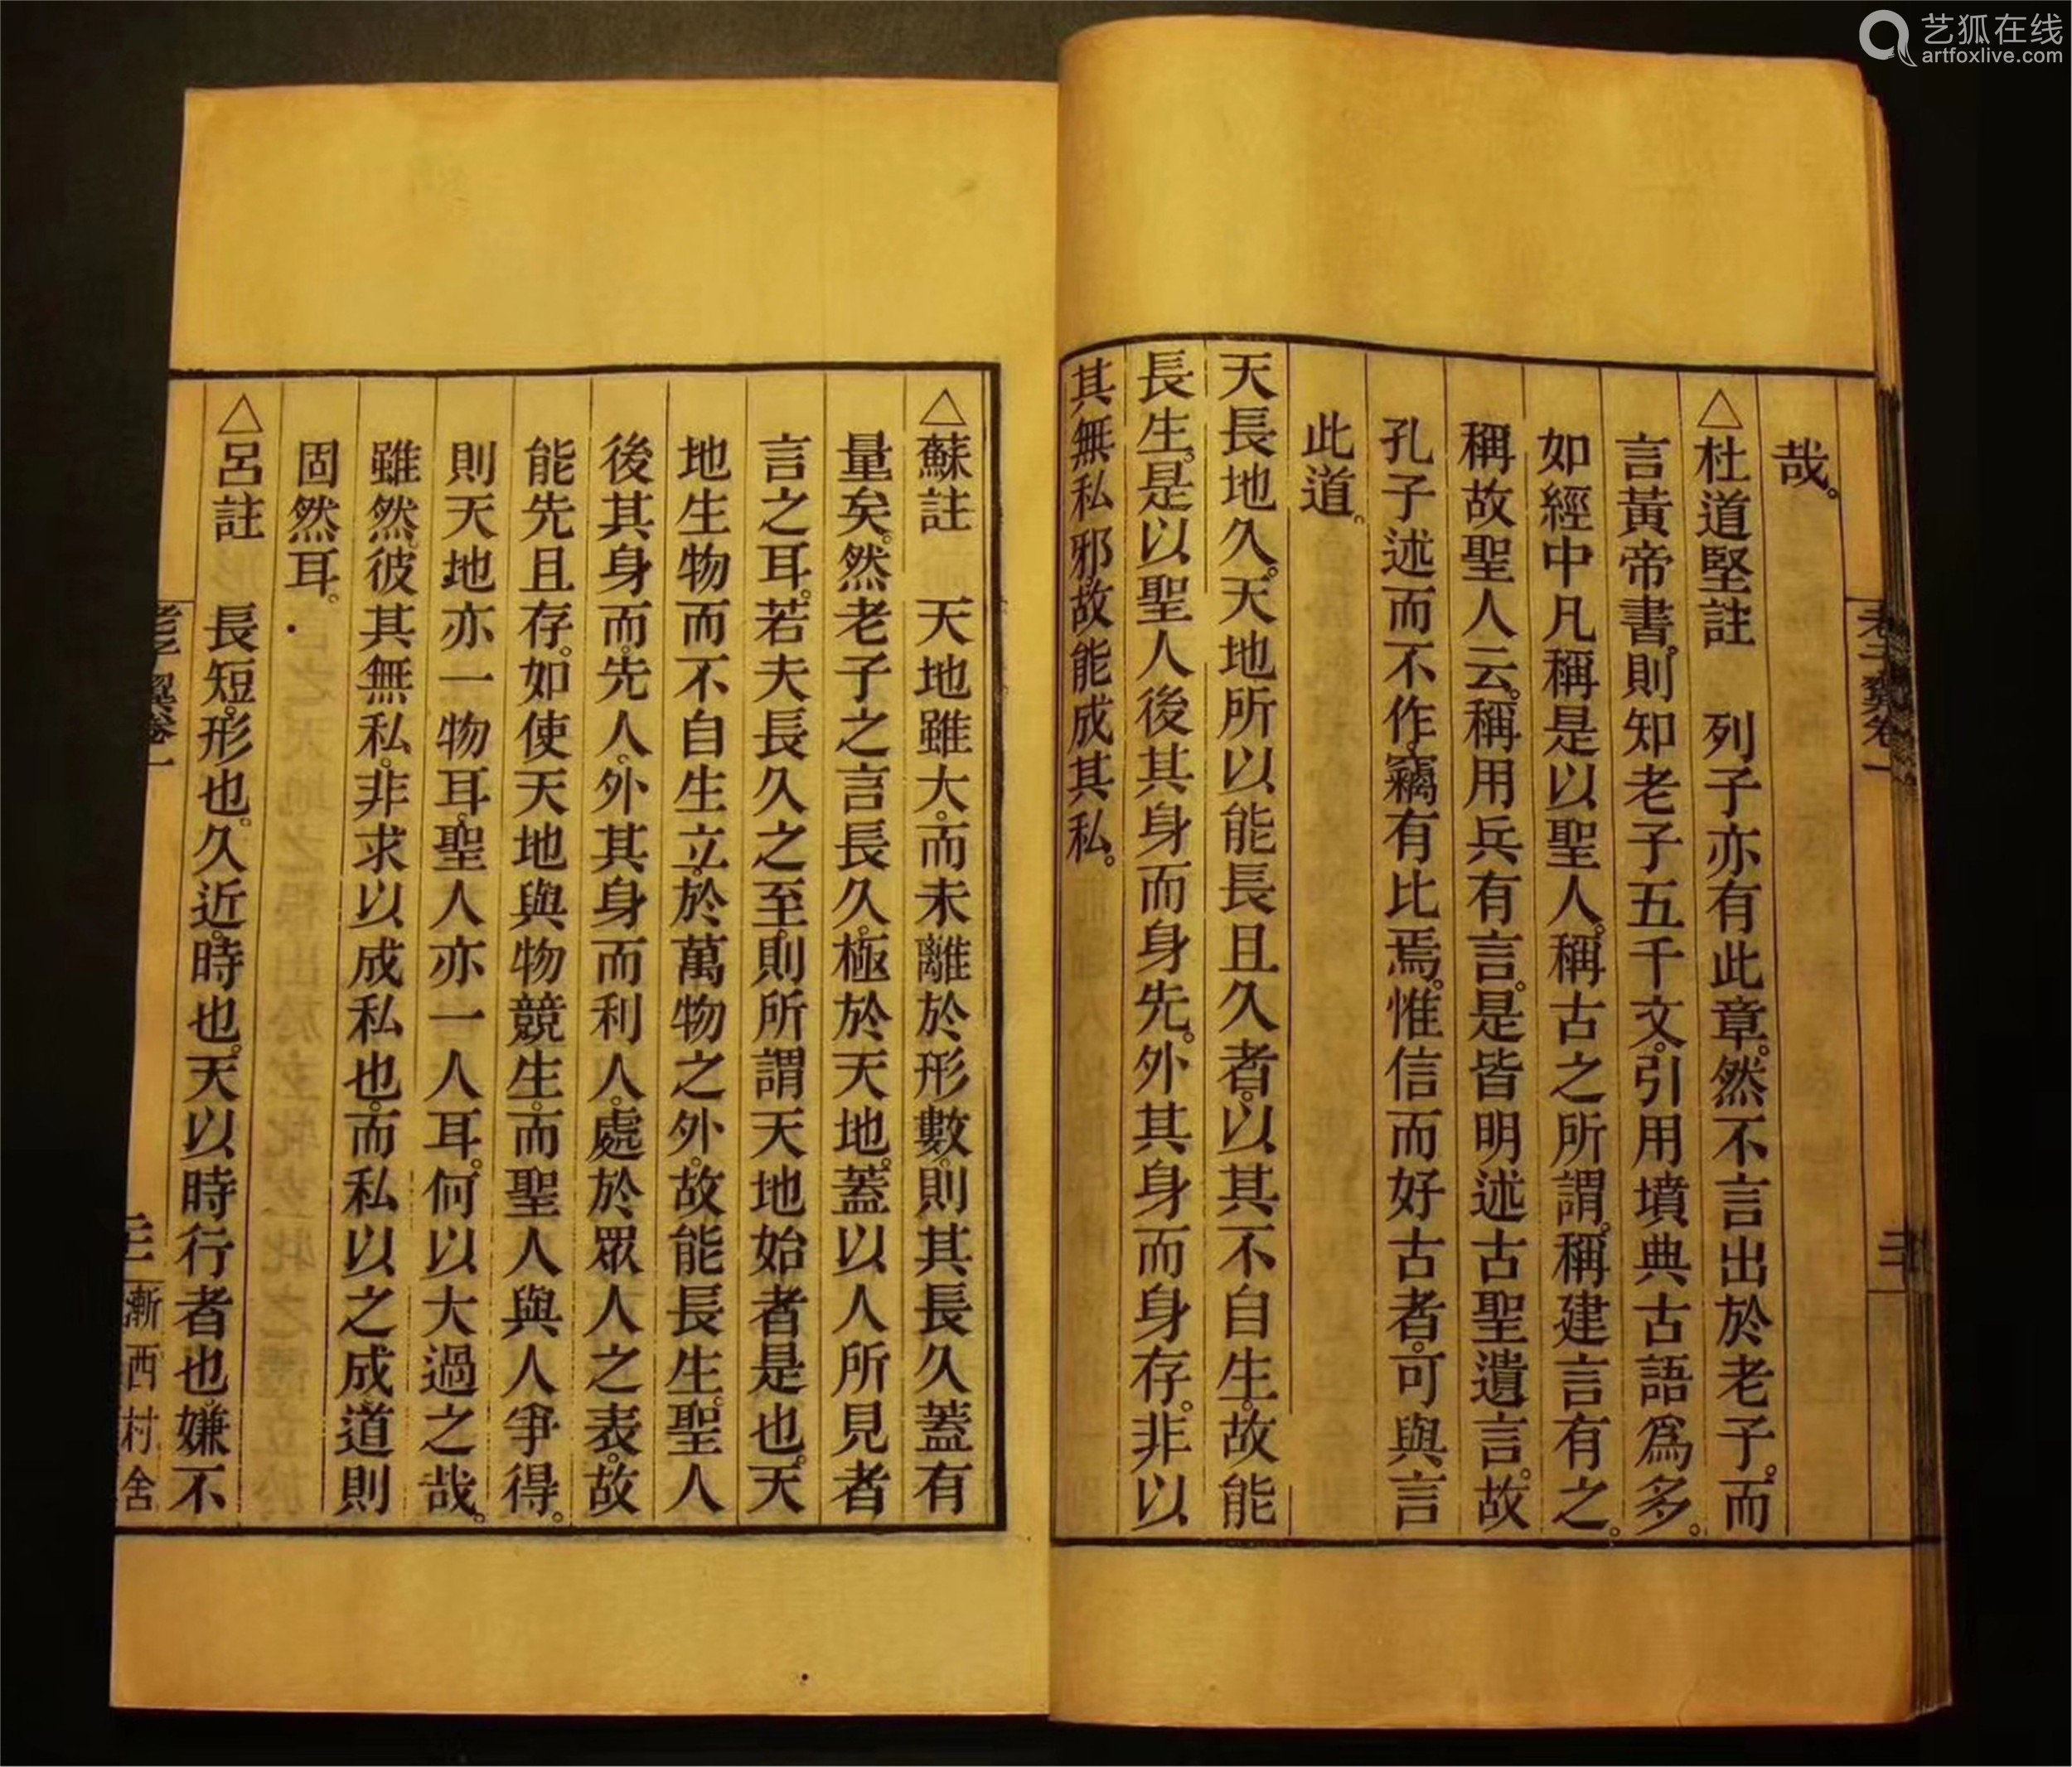 艺狐在线
artfoxlive.com
哉。
△杜道堅註 列子亦有此章。然不言出於老子。而
言黃帝書。則知老子五千文。引用墳典古語爲多。
如經中凡稱是以聖人。稱古之所謂。稱建言有之。
稱故聖人云。稱用兵有言。是皆明述古聖遺言。故
孔子述而不作。竊有比焉。惟信而好古者。可與言
此道。
天長地久。天地所以能長且久者。以其不自生。故能
長生。是以聖人後其身而身先。外其身而身存。非以
其無私邪。故能成其私。
△蘇註 天地雖大。而未離於形數。則其長久蓋有
量矣。然老子之言長久。極於天地。蓋以人所見者
言之耳。若夫長久之至。則所謂天地始者是也。天
地生物而不自生。立於萬物之外。故能長生。聖人
後其身而先人。外其身而利人。處於眾人之表。故
能先且存。如使天地與物競生。而聖人與人爭得。
則天地亦一物耳。聖人亦一人耳。何以大過之哉。
雖然。彼其無私。非求以成私也。而私以之成道則
固然耳。
△呂註 長短。形也。久近。時也。天以時行者也。嫌不
老子翼卷一
漸西村舍